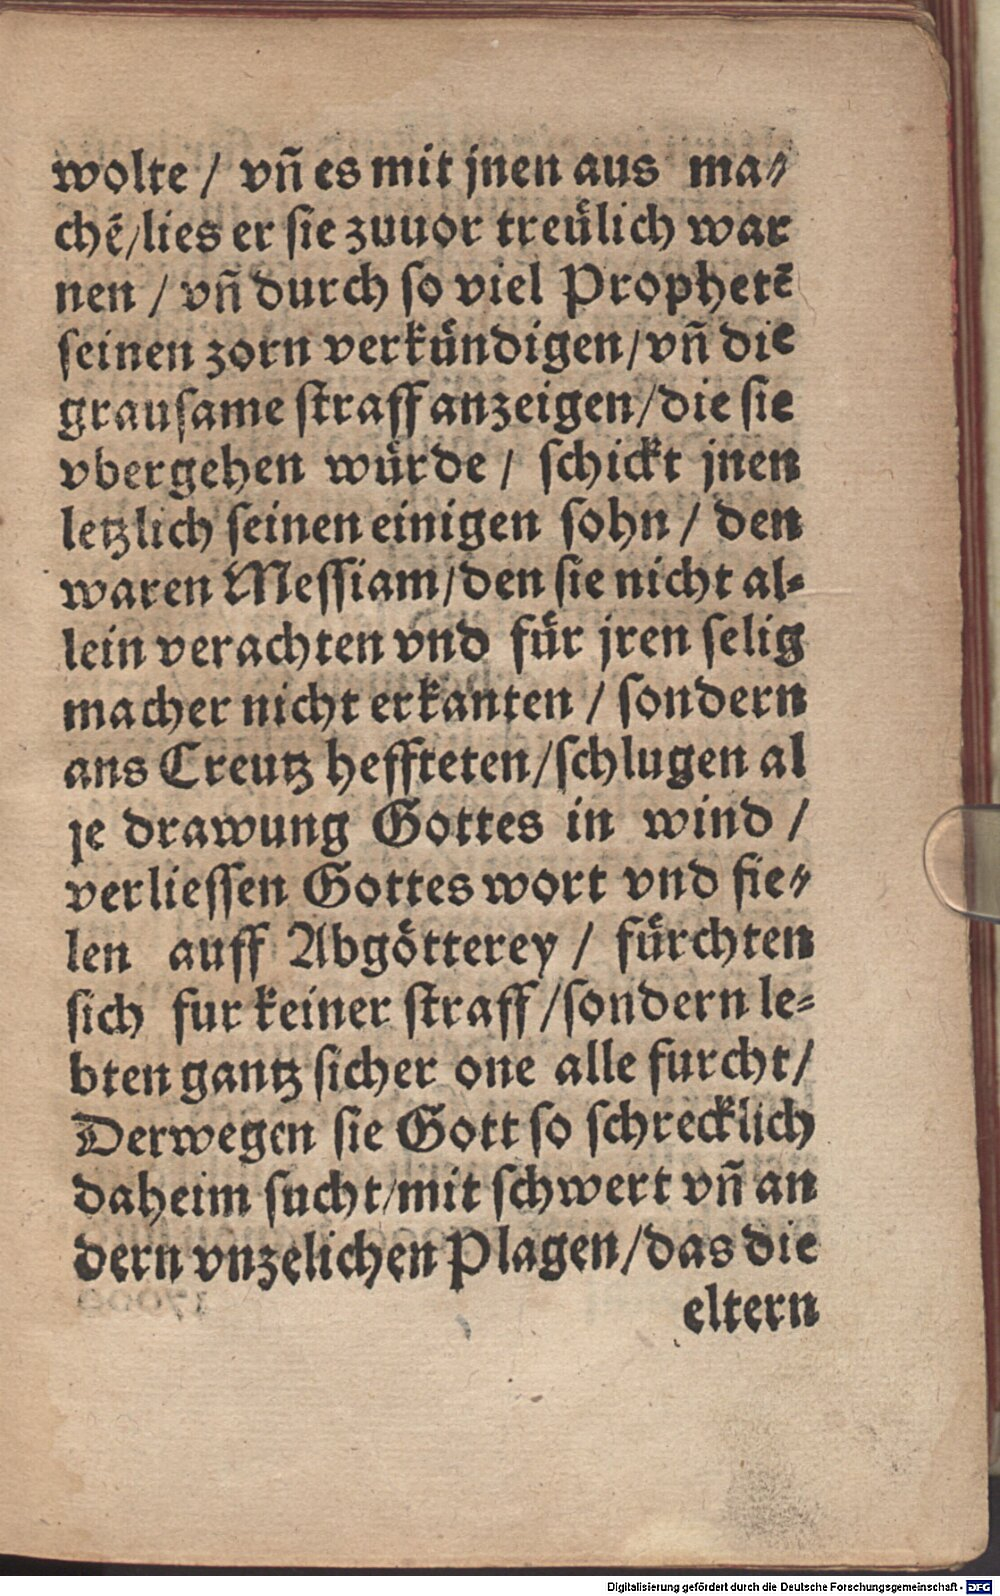 wolte / vñ es mit jnen aus ma⸗
chẽ/lies er sie zuuor treülich war
nen / vñ durch so viel Prophetẽ
seinen zorn verkündigen/vñ die
grausame straff anzeigen/die sie
vbergehen würde / schickt jnen
letzlich seinen einigen sohn / den
waren Messiam/den sie nicht al⸗
lein verachten vnd für jren selig
macher nicht erkanten / sondern
ans Creutz heffteten/schlugen al
je drawung Gottes in wind /
verliessen Gottes wort vnd fie⸗
len auff Abgötterey / fürchten
sich fur keiner straff /sondern le⸗
bten gantz sicher one alle furcht/
Derwegen sie Gott so schrecklich
daheim sucht/mit schwert vñ an
dern vnzelichen Plagen/das die
eltern
Digitalisierung gefördert durch die Deutsche Forschungsgemeinschaft - DFG